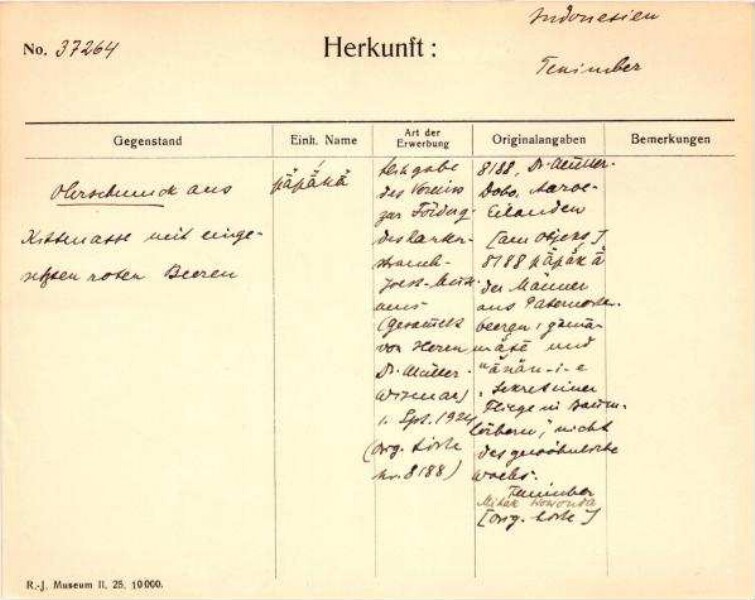 Indonesien
No. 37264 Herkunft:
Tenimber
Gegenstand Einh. Name Art der Erwerbung Originalangaben Bemerkungen
Ohrschmuck aus
Kittmasse mit einge-
setzten roten Beeren
päpäkä
Leihgabe
des Vereins
zur Förderg.
des Rauten-
strauch-
Joest-Mus-
eums
(gesammelt
von Herrn
Dr. Müller-
Wismar)
1. Spt. 1924
(Orig. Liste
Nr. 8188)
8188, Dr. Müller.
Dobo, Aaroe-
Eilanden
[am Objekt]
8188 päpäkä
der Männer
aus Paternoster-
beeren,
und
"änän-i-e
Sekret einer
Fliege in
löchern," nicht
des gewöhnliche
Wachs.
Tenimber
[Orig. Liste]
R.-J. Museum II. 25. 10000.